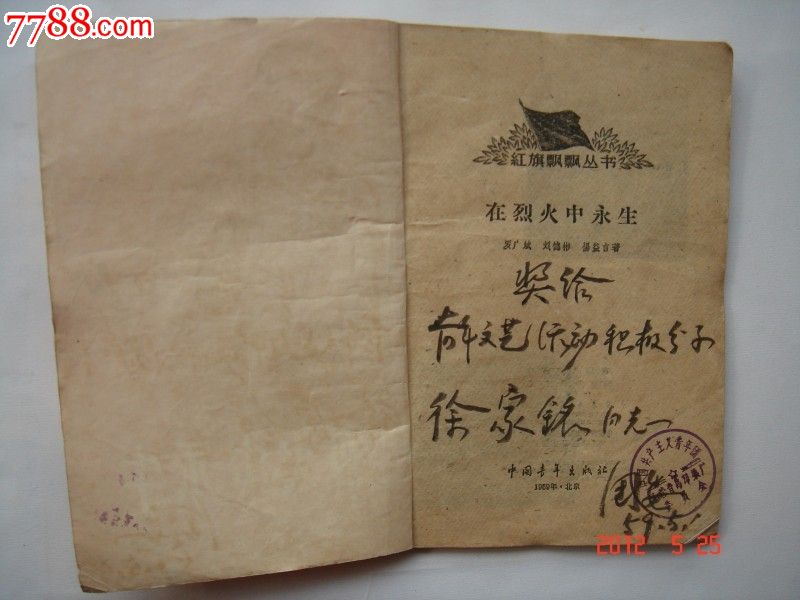 7788.com
紅旗飘飘丛书
在烈火中永生
罗广斌 刘德彬 楊益言著
奖给
青年文艺活动积极分子
徐家銘同志
中国青年出版社
1959年·北京
59.5.
2012 5 25